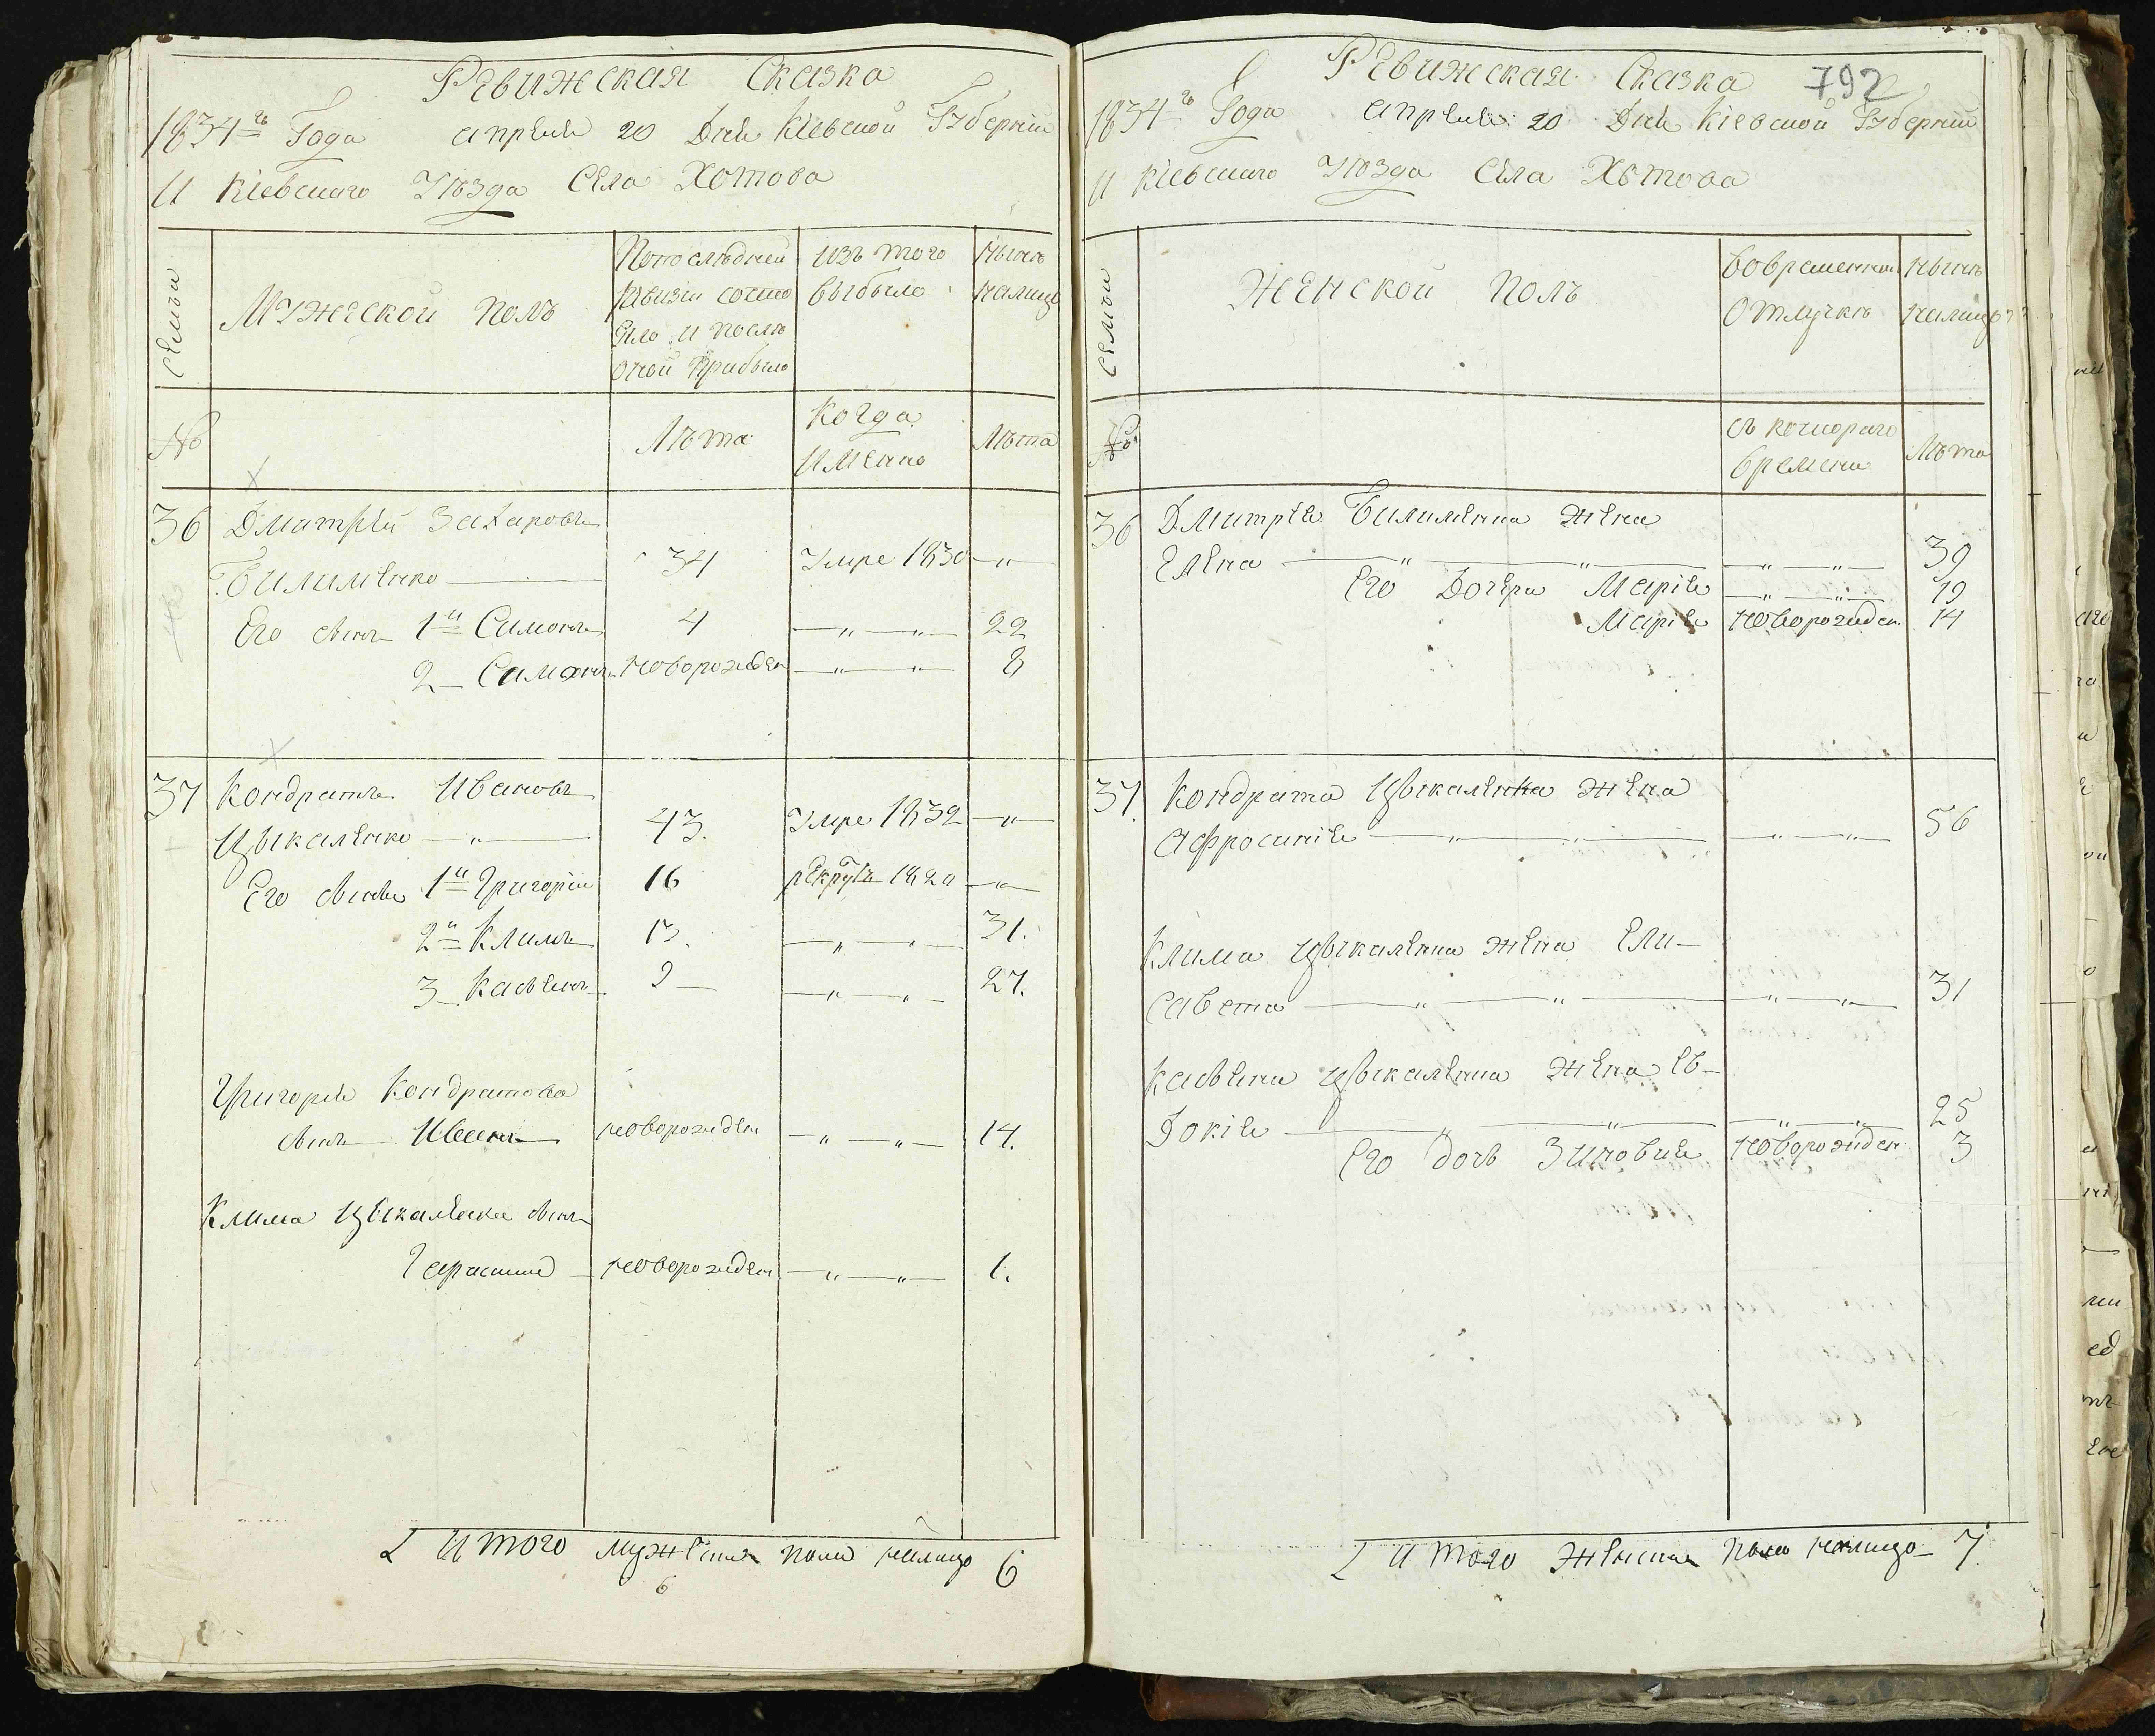 Ревижская Сказка
1834го Года апреля 20 Дня Кіевской Губерніи
И Кіевскаго Уѣзда Села Хотова
Семьи
Мужеской полъ
Попоследней
ревизіи состо
яло и послѣ
оной прибыло
изъ того
выбыло
нынѣ
налицо
№
Лѣта
Когда
именно
Лѣта
36 Дмитрій Захаровъ
Билименко 34 Умре 1830 — „
Его сынъ 1й Симонъ 4 — „ — „ — 22
2 — Симонъ новорожден — „ — „ — 8
37 Кондратъ Ивановъ
Цыкаленко — „ — 43. Умре 1832 — „ —
Его сыновья 1й Григорій 16 рекрутъ 1820 — „ —
2й Климъ 13. — „ — 31.
3 — Касьянъ 9 — — „ — „ — 27.
Григорія Кондратова
сынъ Иванъ новорожден — „ — „ — 14.
Клима Цыкаленка сынъ
Герасимъ новорожден — „ — „ — 1.
Итого мужеска пола налицо 6
6
Ревижская Сказка 792
1834го Года апреля 20 Дня Кіевской Губерніи
И Кіевскаго Уѣзда Села Хотова
Семьи
Женской полъ
Вовременной
отлучкѣ
нынѣ
налицо
№
съ котораго
времени
Лѣта
36 Дмитрія Билименка жена
Елена — „ — „ — — „ — „ — 39
Его Дочери Марія — „ — „ — 19
Марія новорожден. 14
37. Кондрата Цыкаленка жена
Афросинія — „ — „ — — „ — „ — 56
Клима Цыкаленка жена Ели-
савета — „ — „ — — „ — „ — 31
Касьяна Цыкаленка жена Ев-
докія — „ — „ — — „ — „ — 25
Его дочь Зиновия новорожден 3
Итого женска пола налицо — 7.